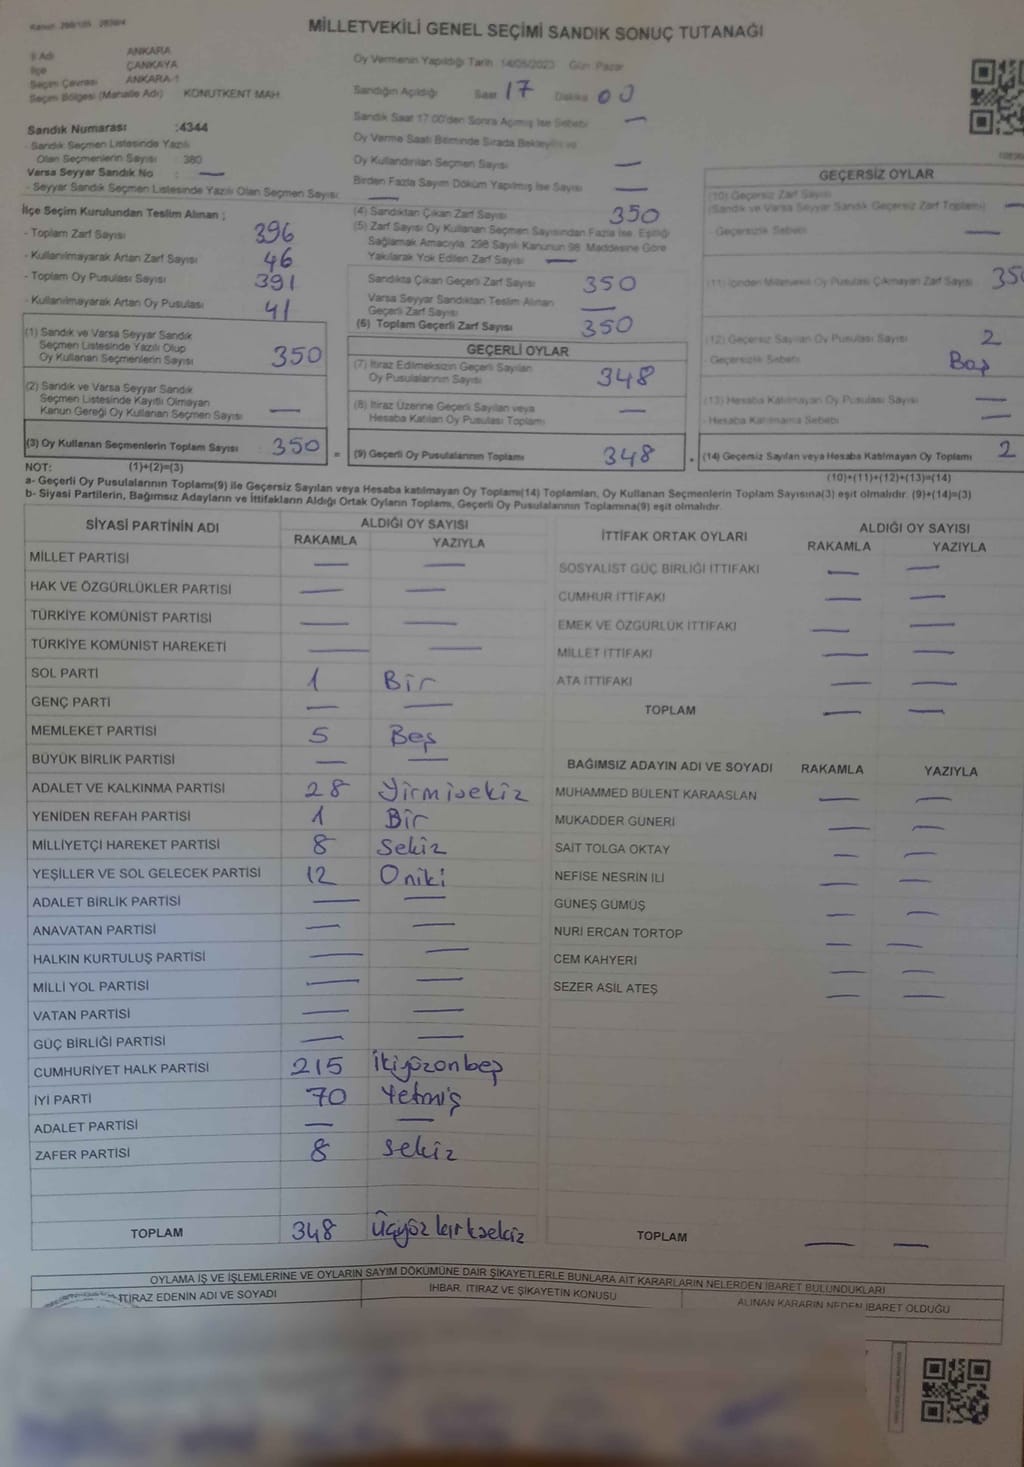 MİLLETVEKİLİ GENEL SEÇİMİ SANDIK SONUÇ TUTANAĞI
İl Adı ANKARA
İlçe ÇANKAYA
Seçim Çevresi ANKARA-1
Seçim Bölgesi (Mahalle Adı) KONUTKENT MAH.
Sandık Numarası :4344
- Sandık Seçmen Listesinde Yazılı
Olan Seçmenlerin Sayısı : 380
Varsa Seyyar Sandık No : —
- Seyyar Sandık Seçmen Listesinde Yazılı Olan Seçmen Sayısı: —
İlçe Seçim Kurulundan Teslim Alınan ;
- Toplam Zarf Sayısı 396
- Kullanılmayarak Artan Zarf Sayısı 46
- Toplam Oy Pusulası Sayısı 391
- Kullanılmayarak Artan Oy Pusulası 41
(1) Sandık ve Varsa Seyyar Sandık
Seçmen Listesinde Yazılı Olup
Oy Kullanan Seçmenlerin Sayısı 350
(2) Sandık ve Varsa Seyyar Sandık
Seçmen Listesinde Kayıtlı Olmayan
Kanun Gereği Oy Kullanan Seçmen Sayısı —
(3) Oy Kullanan Seçmenlerin Toplam Sayısı 350 =
Oy Vermenin Yapıldığı Tarih 14/05/2023 Gün: Pazar
Sandığın Açıldığı Saat 17 Dakika 00
Sandık Saat 17.00'den Sonra Açımış İse Sebebi —
Oy Verme Saati Bitiminde Sırada Bekleyip ve
Oy Kullandırılan Seçmen Sayısı —
Birden Fazla Sayım Döküm Yapılmış İse Sayısı —
(4) Sandıktan Çıkan Zarf Sayısı 350
(5) Zarf Sayısı Oy Kullanan Seçmen Sayısından Fazla İse, Eşitliği
Sağlamak Amacıyla, 298 Sayılı Kanunun 98. Maddesine Göre
Yakılarak Yok Edilen Zarf Sayısı —
Sandıkta Çıkan Geçerli Zarf Sayısı 350
Varsa Seyyar Sandıktan Teslim Alınan
Geçerli Zarf Sayısı —
(6) Toplam Geçerli Zarf Sayısı 350
GEÇERLİ OYLAR
(7) İtiraz Edilmeksizin Geçerli Sayılan
Oy Pusulalarının Sayısı 348
(8) İtiraz Üzerine Geçerli Sayılan veya
Hesaba Katılan Oy Pusulası Toplamı —
(9) Geçerli Oy Pusulalarının Toplamı 348 +
GEÇERSİZ OYLAR
(10) Geçersiz Zarf Sayısı
(Sandık ve Varsa Seyyar Sandık Geçersiz Zarf Toplamı) —
- Geçersizlik Sebebi —
(11) İçinden Milletvekili Oy Pusulası Çıkmayan Zarf Sayısı 350
(12) Geçersiz Sayılan Oy Pusulası Sayısı 2
- Geçersizlik Sebebi Boş
(13) Hesaba Katılmayan Oy Pusulası Sayısı —
- Hesaba Katılmama Sebebi —
(14) Geçersiz Sayılan veya Hesaba Katılmayan Oy Toplamı 2
NOT: (1)+(2)=(3) (10)+(11)+(12)+(13)=(14)
a- Geçerli Oy Pusulalarının Toplamı(9) ile Geçersiz Sayılan veya Hesaba katılmayan Oy Toplamı(14) Toplamları, Oy Kullanan Seçmenlerin Toplam Sayısına(3) eşit olmalıdır. (9)+(14)=(3)
b- Siyasi Partilerin, Bağımsız Adayların ve İttifakların Aldığı Ortak Oyların Toplamı, Geçerli Oy Pusulalarının Toplamına(9) eşit olmalıdır.
SİYASİ PARTİNİN ADI ALDIĞI OY SAYISI
RAKAMLA YAZIYLA
MİLLET PARTİSİ — —
HAK VE ÖZGÜRLÜKLER PARTİSİ — —
TÜRKİYE KOMÜNİST PARTİSİ — —
TÜRKİYE KOMÜNİST HAREKETİ — —
SOL PARTİ 1 Bir
GENÇ PARTİ — —
MEMLEKET PARTİSİ 5 Beş
BÜYÜK BİRLİK PARTİSİ — —
ADALET VE KALKINMA PARTİSİ 28 Yirmisekiz
YENİDEN REFAH PARTİSİ 1 Bir
MİLLİYETÇİ HAREKET PARTİSİ 8 Sekiz
YEŞİLLER VE SOL GELECEK PARTİSİ 12 Oniki
ADALET BİRLİK PARTİSİ — —
ANAVATAN PARTİSİ — —
HALKIN KURTULUŞ PARTİSİ — —
MİLLİ YOL PARTİSİ — —
VATAN PARTİSİ — —
GÜÇ BİRLİĞİ PARTİSİ — —
CUMHURİYET HALK PARTİSİ 215 İkiyüzonbeş
İYİ PARTİ 70 Yetmiş
ADALET PARTİSİ — —
ZAFER PARTİSİ 8 Sekiz
TOPLAM 348 Üçyüz kırksekiz
İTTİFAK ORTAK OYLARI ALDIĞI OY SAYISI
RAKAMLA YAZIYLA
SOSYALİST GÜÇ BİRLİĞİ İTTİFAKI — —
CUMHUR İTTİFAKI — —
EMEK VE ÖZGÜRLÜK İTTİFAKI — —
MİLLET İTTİFAKI — —
ATA İTTİFAKI — —
TOPLAM — —
BAĞIMSIZ ADAYIN ADI VE SOYADI RAKAMLA YAZIYLA
MUHAMMED BÜLENT KARAASLAN — —
MUKADDER GÜNERİ — —
SAİT TOLGA OKTAY — —
NEFİSE NESRİN İLİ — —
GÜNEŞ GÜMÜŞ — —
NURİ ERCAN TORTOP — —
CEM KAHYERİ — —
SEZER ASİL ATEŞ — —
TOPLAM — —
OYLAMA İŞ VE İŞLEMLERİNE VE OYLARIN SAYIM DÖKÜMÜNE DAİR ŞİKAYETLERLE BUNLARA AİT KARARLARIN NELERDEN İBARET BULUNDUKLARI
İTİRAZ EDENİN ADI VE SOYADI İHBAR, İTİRAZ VE ŞİKAYETİN KONUSU ALINAN KARARIN NEDEN İBARET OLDUĞU